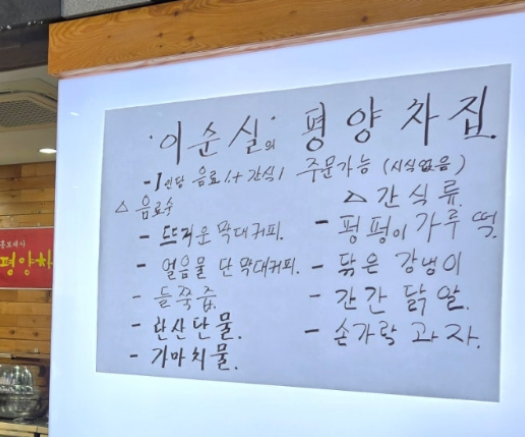 '이순실'의 평양차집.
-1인당 음료1+간식1 주문가능 (시식없음)
△ 음료수
- 뜨거운 막대커피.
- 얼음물 단 막대커피.
- 들쭉즙.
- 탄산단물.
- 가마치물.
△ 간식류.
- 펑펑이 가루 떡.
- 닦은 강냉이
- 간간 닭알.
- 손가락 과자.
홍보대사
평양차